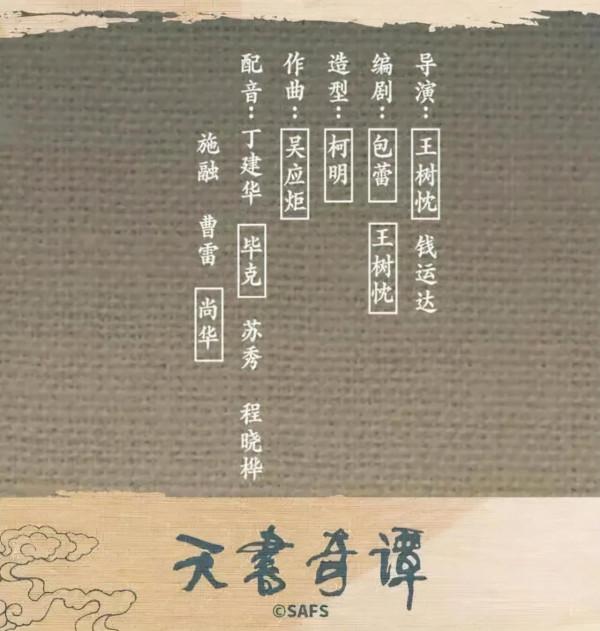 导演：王树忱 钱运达
编剧：包蕾 王树忱
造型：柯明
作曲：吴应炬
配音：丁建华 毕克 苏秀 程晓桦
施融 曹雷 尚华
天書奇谭
©SAFS